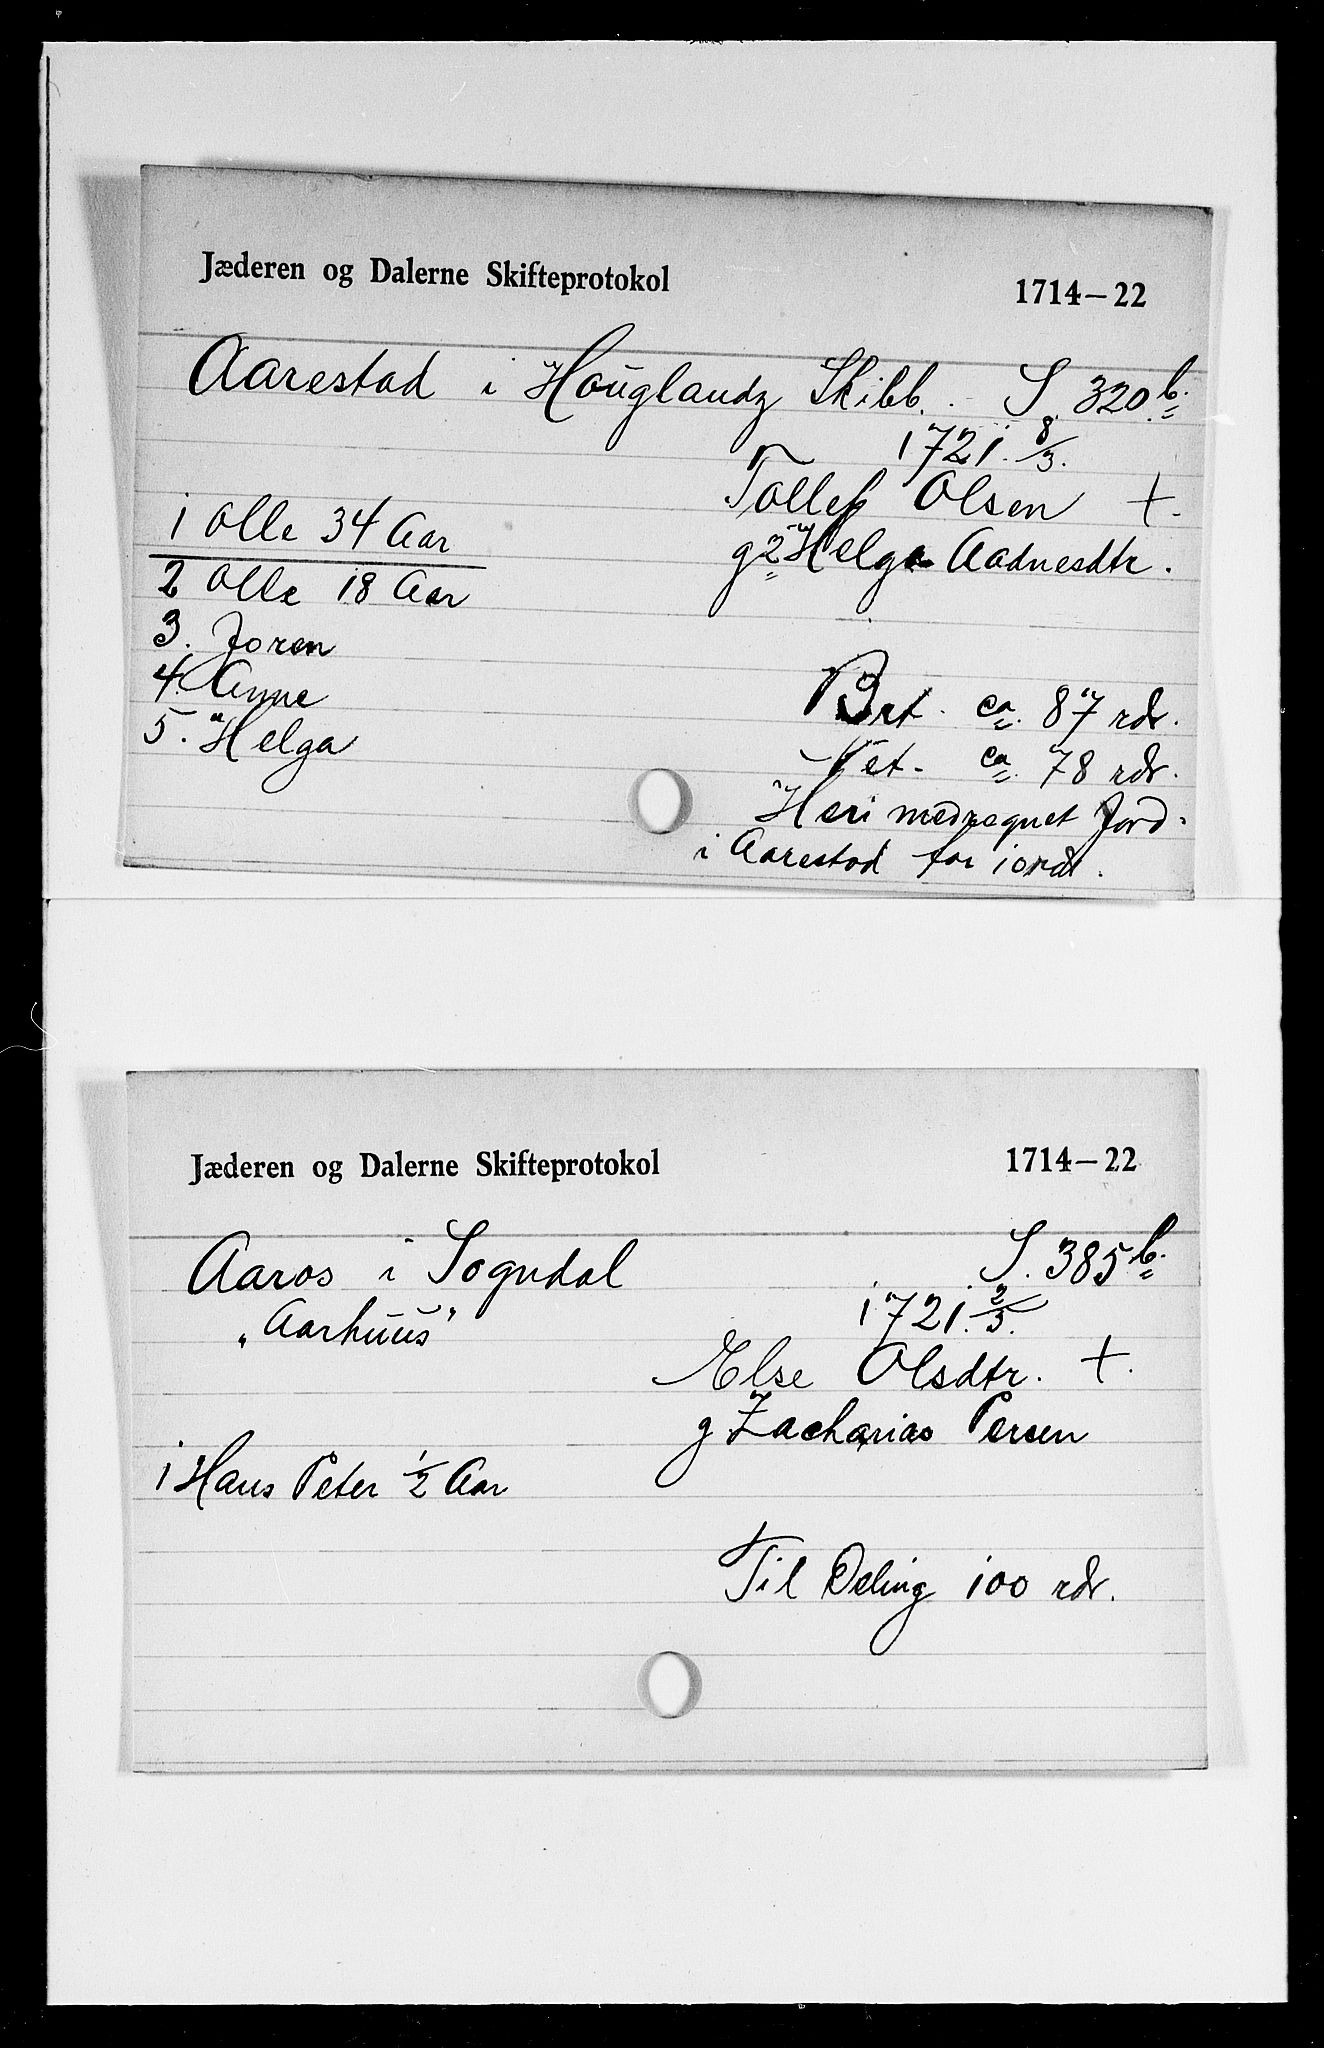 Jæderen og Dalerne Skifteprotokol 1714–22
Aarestad i Houglandz Skibb. S. 320 b.
1721. 8/3.
Tollef Olsen +.
g 2 Helga Aadnesdtr.
1 Olle 34 Aar
2 Olle 18 Aar
3. Joren
4. Anne
5. Helga
Brt. ca. 87 rdr.
Net. ca. 78 rdr.
Heri medregnet Jord.
i Aarestad for 10 rdr.
Jæderen og Dalerne Skifteprotokol 1714–22
Aaros i Sogndal S. 385 b.
„Aarhuus" 1721. 2/5.
Else Olsdtr. +.
g Zacharias Persen
1 Hans Peter 1/2 Aar
Til Deling 100 rdr.